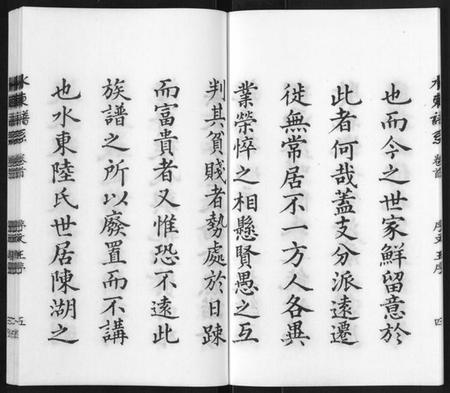 水東譜系 卷首 序文 五序 四
也而今之世家鮮留意於
此者何哉蓋支分派遠遷
徙無常居不一方人各異
業榮悴之相懸賢愚之互
判其貧賤者勢處於日踈
而富貴者又惟恐不遠此
族譜之所以廢置而不講
也水東陸氏世居陳湖之
水東譜系 卷首 序文 五序 五